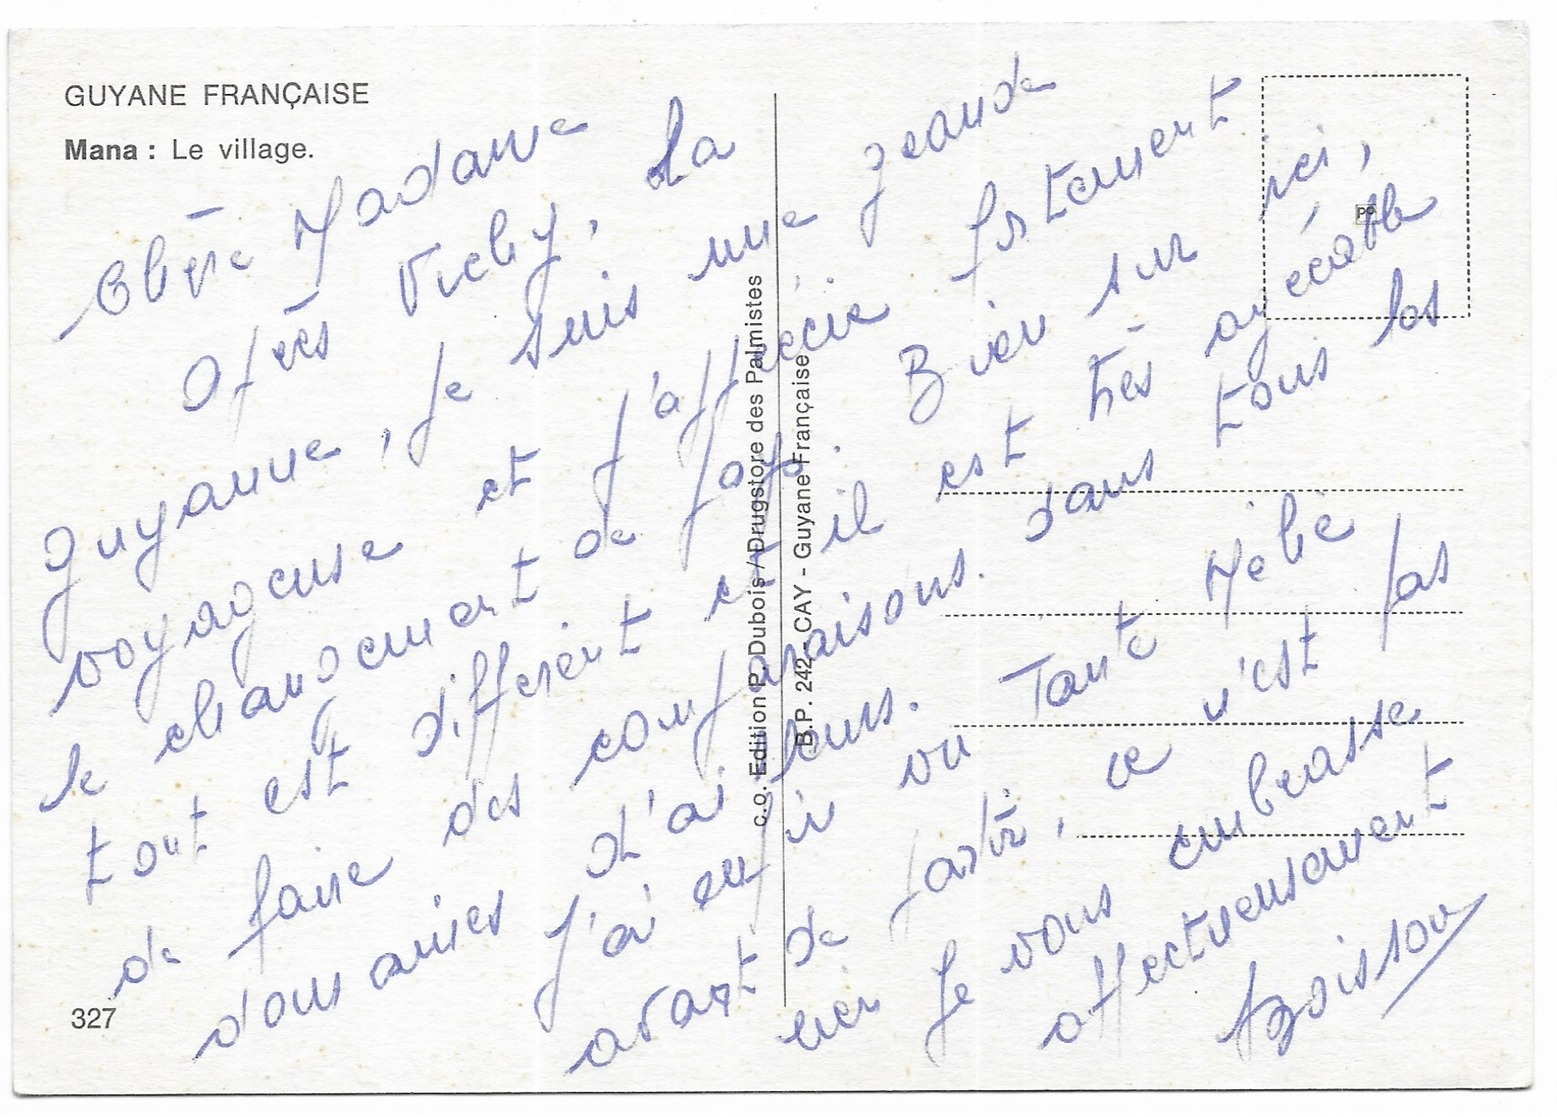 GUYANE FRANÇAISE
Mana : Le village.
Chère Madame
Après Vichy, la
Guyanne, je suis une grande
voyageuse et j'apprécie fortement
le changement de pays. Bien sur ici,
tout est différent et il est très agréable
de faire des comparaisons. dans tous les
domaines d'ailleurs.
J'ai enfin vu Tante Mélie
avant de partir, ce n'est pas
rien Je vous embrasse
affectueusement
ABoisson
c.o. Edition P. Dubois / Drugstore des Palmistes
B.P. 242 - CAY - Guyane Française
327